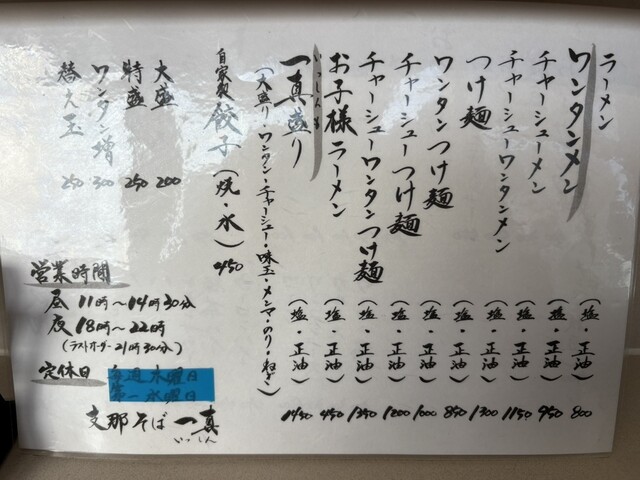 ラーメン（塩・正油）800
ワンタンメン（塩・正油）950
チャーシューメン（塩・正油）1150
チャーシューワンタンメン（塩・正油）1300
つけ麺（塩・正油）850
ワンタンつけ麺（塩・正油）1000
チャーシューつけ麺（塩・正油）1200
チャーシューワンタンつけ麺（塩・正油）1350
お子様ラーメン（塩・正油）450
いっしんもり
一真盛り（塩・正油）1450
（大盛り・ワンタン・チャーシュー・味玉・メンマ・のり・ねぎ）
自家製餃子（焼・水）450
大盛 200
特盛 250
ワンタン増 300
替え玉 250
営業時間
昼 11時〜14時30分
夜 18時〜22時
（ラストオーダー21時30分）
定休日 毎週木曜日
第一水曜日
支那そば一真
いっしん